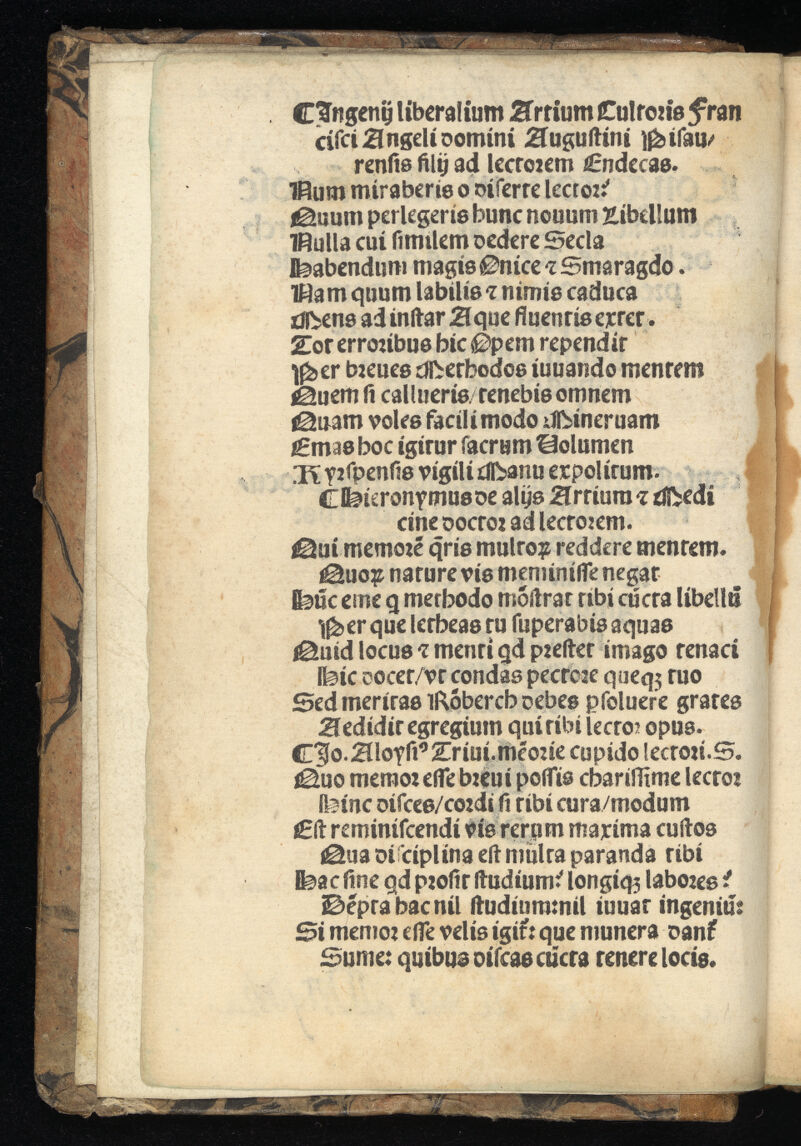 ¶Ingenij liberalium Artium Cultoris Fran
cisci Angeli domini Augustini Pisau/
rensis filij ad lectorem Endecas.
Num miraberis o diserte lector?
Quum perlegeris hunc nouum Libellum
Nulla cui similem dedere Secla
Habendum magis Onice ⁊ Smaragdo.
Nam quum labilis ⁊ nimis caduca
Mens ad instar Aque fluentis extet.
Tot erroribus hic Opem rependit
Per breues Methodos iuuando mentem
Quem si callueris/tenebis omnem
Quam voles facili modo Mineruam
Emas hoc igitur sacrum Volumen
Kyrspensis vigili Manu expolitum.
¶Hieronymus de alijs Artium ⁊ Medi
cine doctor ad lectorem.
Qui memorē q̄ris multoꝝ reddere mentem.
Quoꝝ nature vis meminisse negat
Hūc eme q methodo mōstrat tibi cūcta libellū
Per que letheas tu superabis aquas
Quid locus ⁊ menti qd prestet imago tenaci
Hic docet/vt condas pectore queqꝫ tuo
Sed meritas Rōberch debes psoluere grates
Aedidit egregium qui tibi lector opus.
¶Jo. Aloysiꝰ Triui. mēorie cupido lectori. S.
Quo memor esse breui possis charissime lector
Hinc disces/cordi si tibi cura/modum
Est reminiscendi vis rerum maxima custos
Qua disciplina est multa paranda tibi
Hac sine qd prosit studium? longiqꝫ labores?
Dēpta hac nil studium:nil iuuat ingeniū:
Si memor esse velis igit᷑: que munera dant᷑
Sume: quibus discas cūcta tenere locis.